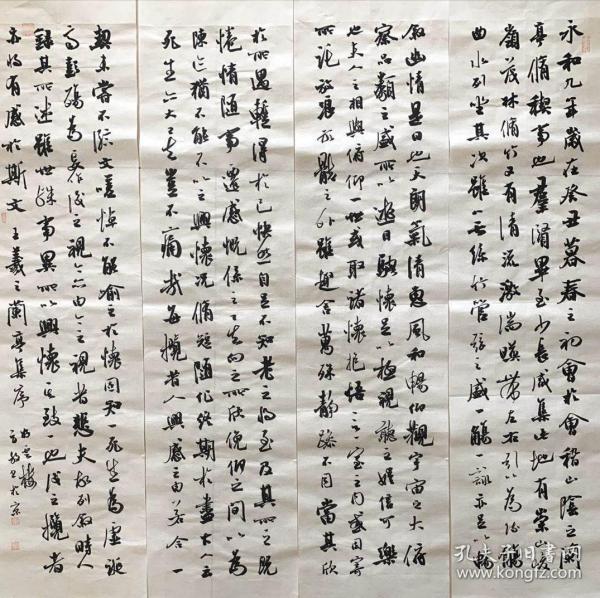 永和九年歲在癸丑暮春之初會於會稽山陰之蘭
亭脩禊事也羣賢畢至少長咸集此地有崇山峻
嶺茂林脩竹又有清流激湍暎帶左右引以為流觴
曲水列坐其次雖無絲竹管弦之盛一觴一詠亦足以暢
敘幽情是日也天朗氣清惠風和暢仰觀宇宙之大俯
察品類之盛所以遊目騁懷足以極視聽之娛信可樂
也夫人之相與俯仰一世或取諸懷抱悟言一室之內或因寄
所託放浪形骸之外雖趣舍萬殊靜躁不同當其欣
於所遇暫得於己快然自足不知老之將至及其所之既
惓情隨事遷感慨係之矣向之所欣俛仰之間以為
陳迹猶不能不以之興懷況脩短隨化終期於盡古人云
死生亦大矣豈不痛哉每攬昔人興感之由若合一
契未嘗不臨文嗟悼不能喻之於懷固知一死生為虛誕
齊彭殤為妄作後之視今亦由今之視昔悲夫故列敘時人
錄其所述雖世殊事異所以興懷其致一也後之攬者
亦將有感於斯文 王羲之蘭亭集序
孔夫子旧书网
www.kongfz.com